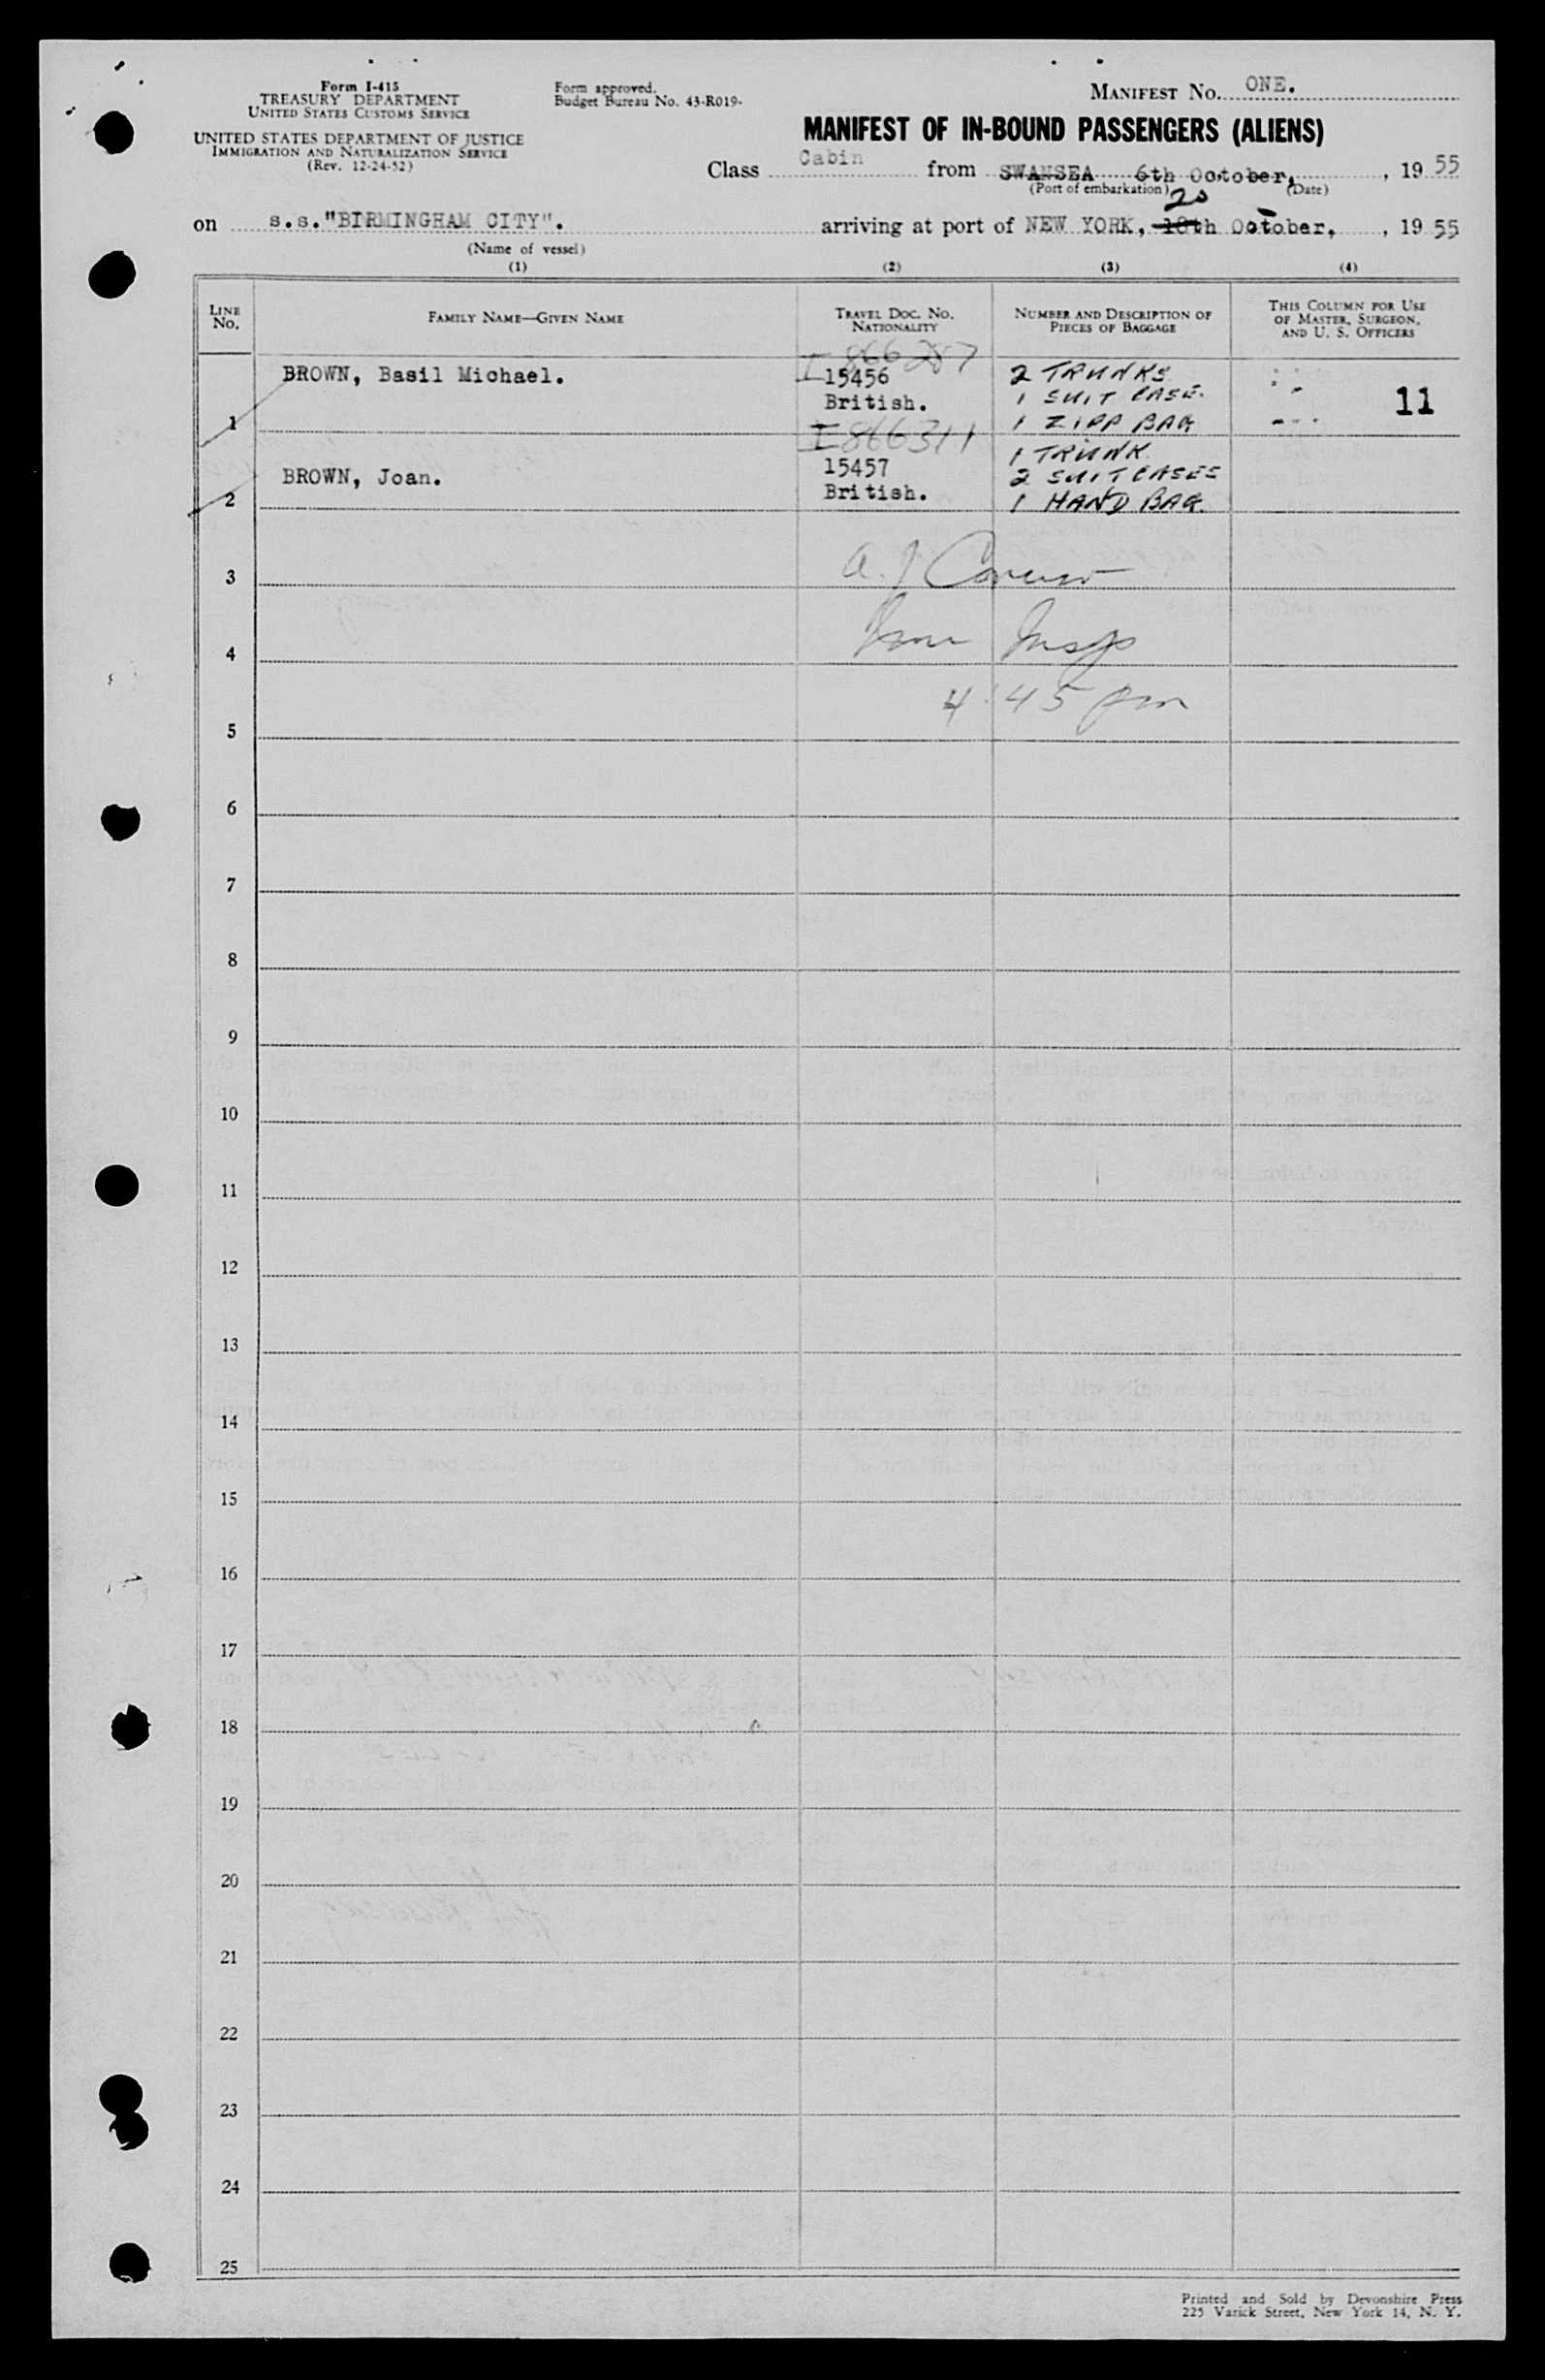 Form I-415
TREASURY DEPARTMENT
UNITED STATES CUSTOMS SERVICE
UNITED STATES DEPARTMENT OF JUSTICE
IMMIGRATION AND NATURALIZATION SERVICE
(Rev. 12-24-52)
Form approved.
Budget Bureau No. 43-R019-
MANIFEST No. ONE.
MANIFEST OF IN-BOUND PASSENGERS (ALIENS)
Class Cabin from SWANSEA 6th October, , 19 55
(Port of embarkation) (Date)
20
on s.s."BIRMINGHAM CITY". arriving at port of NEW YORK, 18th October, , 19 55
(Name of vessel)
(1) (2) (3) (4)
LINE No. FAMILY NAME—GIVEN NAME TRAVEL DOC. NO. NATIONALITY NUMBER AND DESCRIPTION OF PIECES OF BAGGAGE THIS COLUMN FOR USE OF MASTER, SURGEON, AND U. S. OFFICERS
I 866287
BROWN, Basil Michael. 15456 2 TRUNKS
British. 1 SUIT CASE. 11
1 1 ZIPP BAG
I 866311 1 TRUNK
BROWN, Joan. 15457 2 SUITCASES
2 British. 1 HAND BAG.
3 A. J Caruso
4 Imm Insp
4:45 pm
5
6
7
8
9
10
11
12
13
14
15
16
17
18
19
20
21
22
23
24
25
Printed and Sold by Devonshire Press
225 Varick Street, New York 14, N. Y.